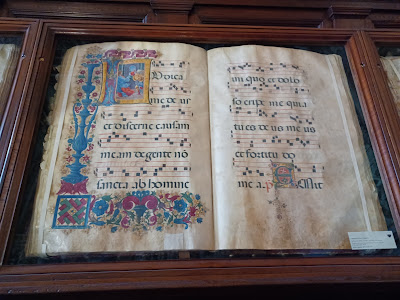 Iudica
me de us
et discerne causam
meam de gente nõ
sancta ab homine
iniquo et dolo
so eripe me quia
tu es de us me us
et fortitu do
me a. Emit